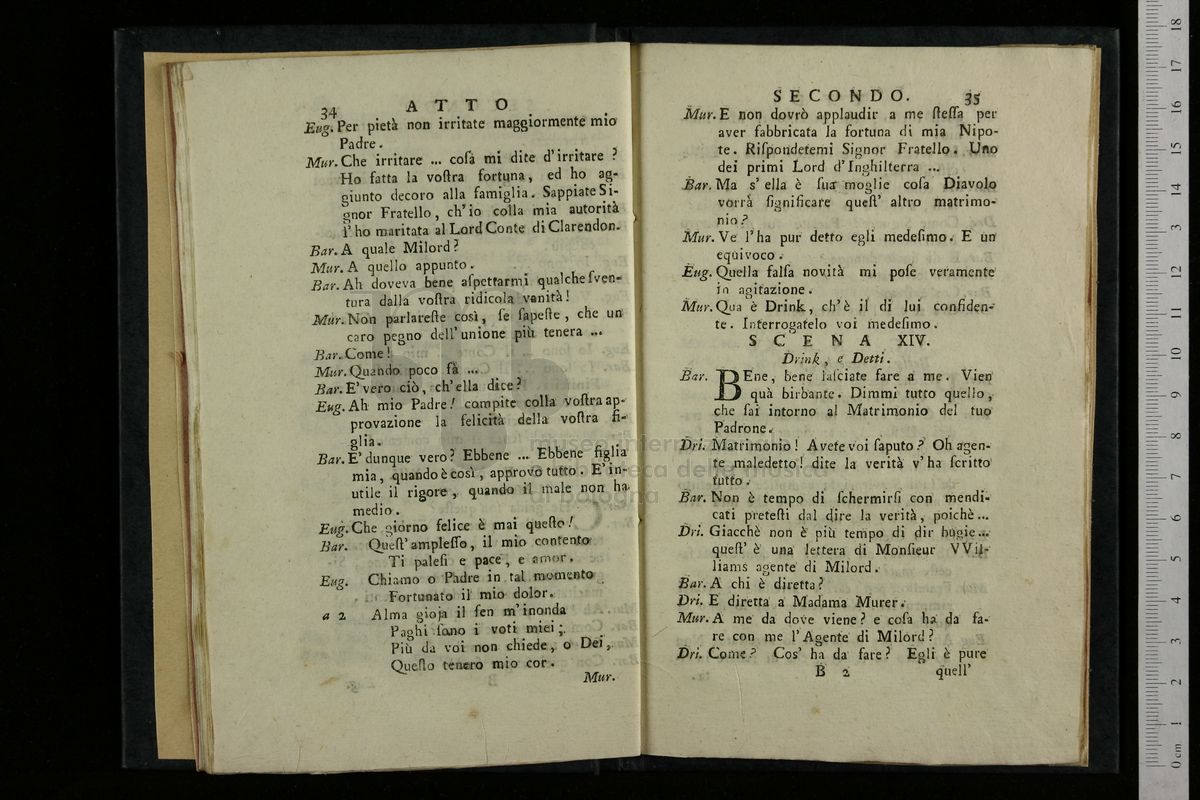 34 ATTO
Eug. Per pietà non irritate maggiormente mio
Padre.
Mur. Che irritare ... coſa mi dite d'irritare ?
Ho fatta la voſtra fortuna, ed ho ag-
giunto decoro alla famiglia. Sappiate Si-
gnor Fratello, ch'io colla mia autorità
l'ho maritata al Lord Conte di Clarendon.
Bar. A quale Milord?
Mur. A quello appunto.
Bar. Ah doveva bene aſpettarmi qualche ſven-
tura dalla voſtra ridicola vanità!
Mur. Non parlareſte così, ſe ſapeſte, che un
caro pegno dell'unione più tenera ...
Bar. Come!
Mur. Quando poco fà ...
Bar. E' vero ciò, ch'ella dice?
Eug. Ah mio Padre! compite colla voſtra ap-
provazione la felicità della voſtra fi-
glia.
Bar. E' dunque vero? Ebbene ... Ebbene figlia
mia, quando è così, approvo tutto. E' in-
utile il rigore, quando il male non ha
medio.
Eug. Che giorno felice è mai queſto!
Bar. Queſt'ampleſſo, il mio contento
Ti paleſi e pace, e amor.
Eug. Chiamo o Padre in tal momento
Fortunato il mio dolor.
a 2 Alma gioja il ſen m'inonda
Paghi ſono i voti miei;
Più da voi non chiede, o Dei,
Queſto tenero mio cor.
Mur.
SECONDO. 35
Mur. E non dovrò applaudir a me ſteſſa per
aver fabbricata la fortuna di mia Nipo-
te. Riſpondetemi Signor Fratello. Uno
dei primi Lord d'Inghilterra ...
Bar. Ma s'ella è ſua moglie coſa Diavolo
vorrà ſignificare queſt'altro matrimo-
nio?
Mur. Ve l'ha pur detto egli medeſimo. E un
equivoco.
Eug. Quella falſa novità mi poſe veramente
in agitazione.
Mur. Qua è Drink, ch'è il di lui confiden-
te. Interrogatelo voi medeſimo.
SCENA XIV.
Drink, e Detti.
Bar. BEne, bene laſciate fare a me. Vien
quà birbante. Dimmi tutto quello,
che ſai intorno al Matrimonio del tuo
Padrone.
Dri. Matrimonio! Avete voi ſaputo? Oh agen-
te maledetto! dite la verità v'ha ſcritto
tutto.
Bar. Non è tempo di ſchermirſi con mendi-
cati preteſti dal dire la verità, poichè...
Dri. Giacchè non è più tempo di dir bugie...
queſt'è una lettera di Monſieur VVil-
liams agente di Milord.
Bar. A chi è diretta?
Dri. E diretta a Madama Murer.
Mur. A me da dove viene? e coſa ha da fa-
re con me l'Agente di Milord?
Dri. Come? Cos'ha da fare? Egli è pure
B 2 quell'